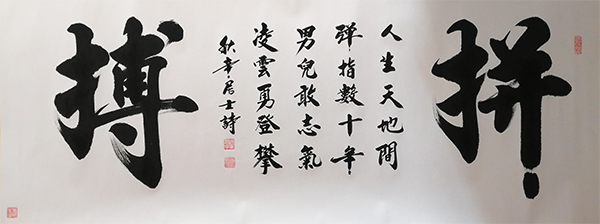 拼
人生天地間
彈指數十年
男兒敢志氣
凌雲勇登攀
秋辛居士詩
搏